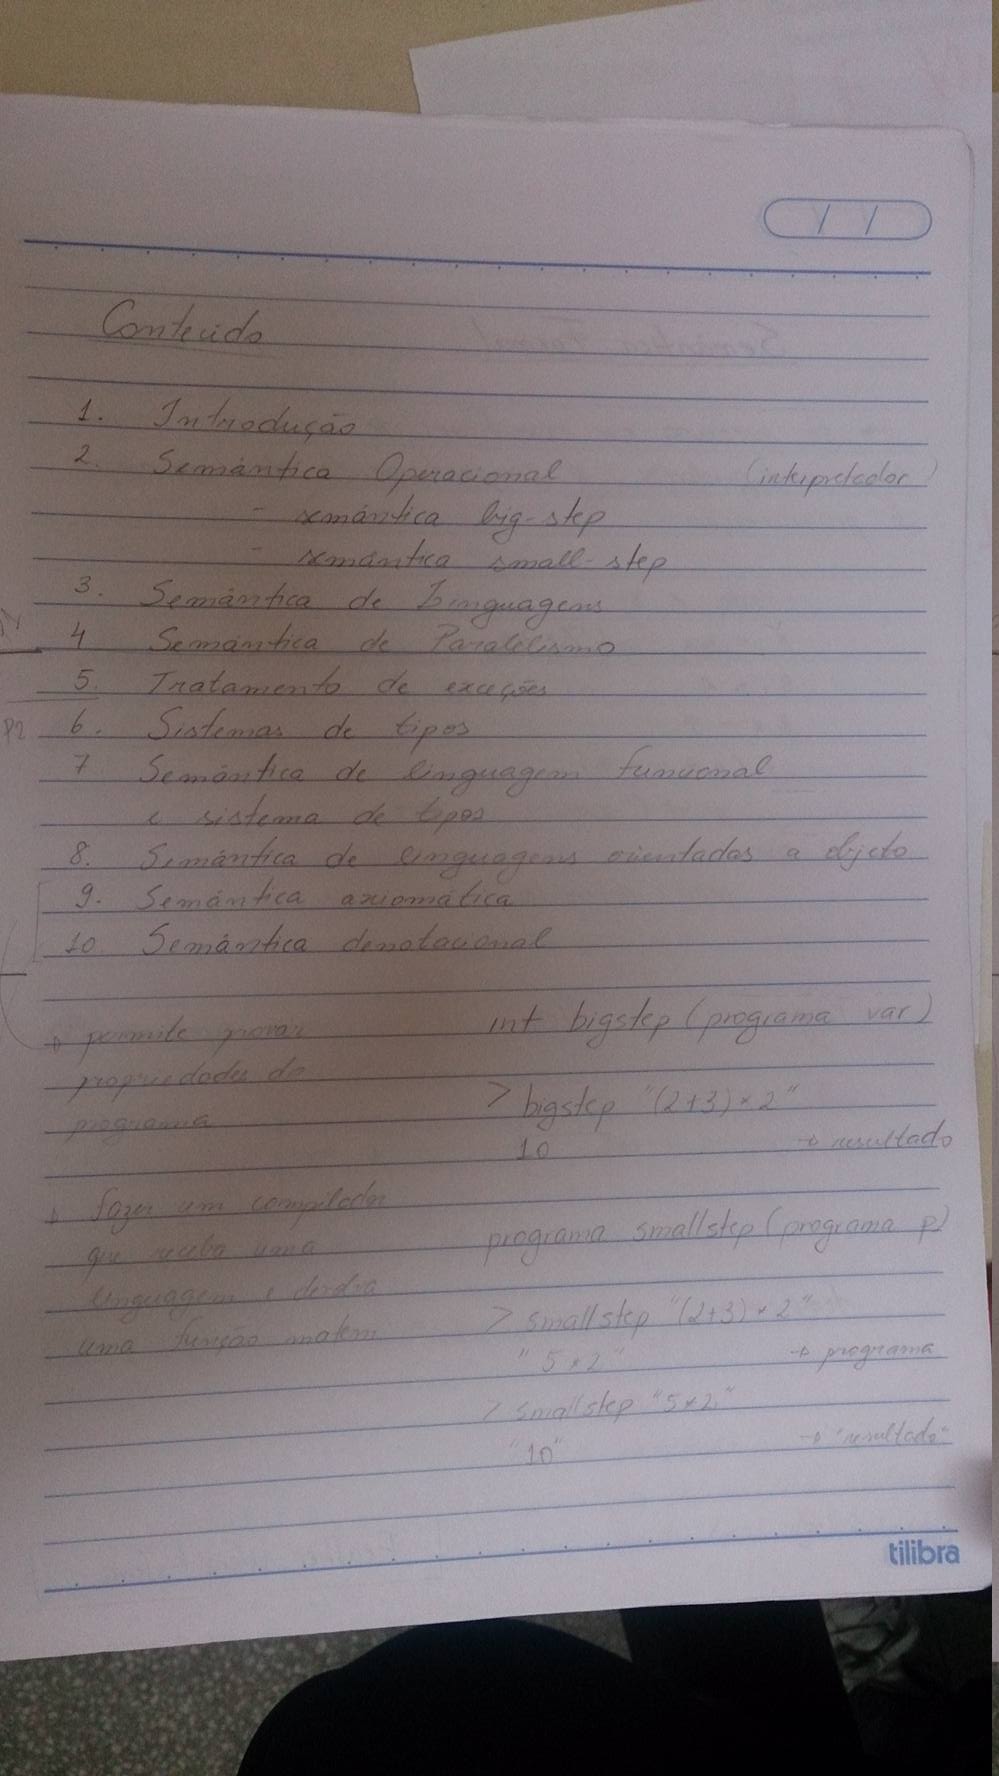 Conteúdo
1. Introdução
2. Semântica Operacional (interpretador)
- semântica big-step
- semântica small-step
3. Semântica de Linguagens
4 Semântica de Paralelismo
5. Tratamento de exceções
P2
6. Sistemas de tipos
7 Semântica de linguagem funcional
e sistema de tipos
8. Semântica de linguagens orientadas a objeto
9. Semântica axiomática
10 Semântica denotacional
→ permite provar
propriedades do
programa
→ fazer um compilador
que receba uma
linguagem e devolva
uma função matem
int bigstep (programa var)
> bigstep "(2+3)*2"
10 → resultado
programa smallstep (programa p)
> smallstep "(2+3)*2"
"5*2" → programa
> smallstep "5*2"
"10" → "resultado"
tilibra